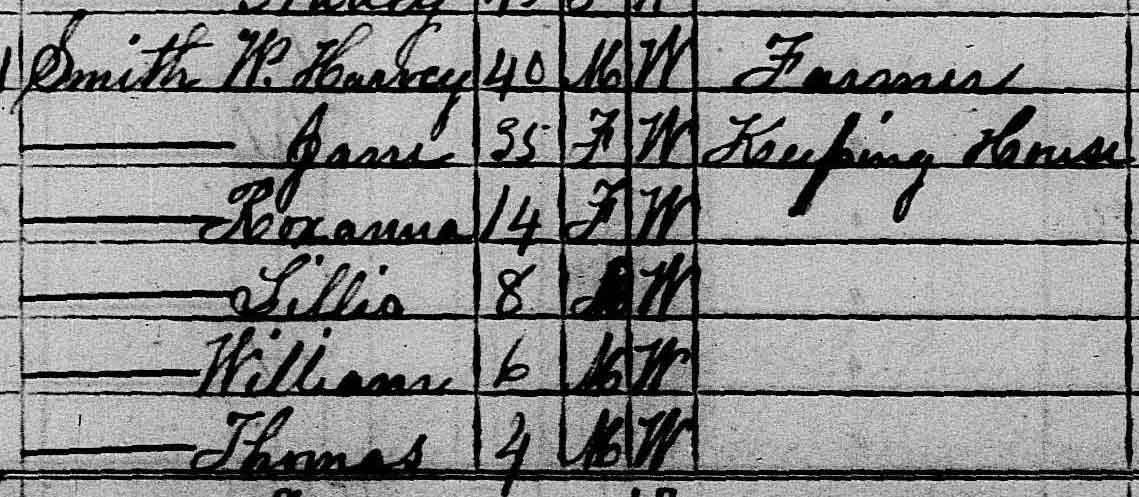 Smith W. Harvey 40 M W Farmer
—— Jane 35 F W Keeping House
—— Roxanna 14 F W
—— Lillis 8 W
—— William 6 M W
—— Thomas 4 M W